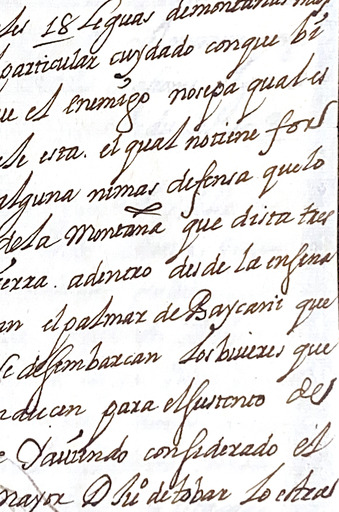 les 18 leguas de montanas mas
particular cuydado con que bi
ue el enemigo no sepa qual es
ele esta. el qual no tiene for
alguna ni mas defensa que lo
de la Montaña que dista tres
ierra. adentro desde la ensena
an el palmar de Baycani que
se desembarcan los biueres que
nducen para el sustento del
e Yauiendo considerado el
mayor D luº de tobar lo estras